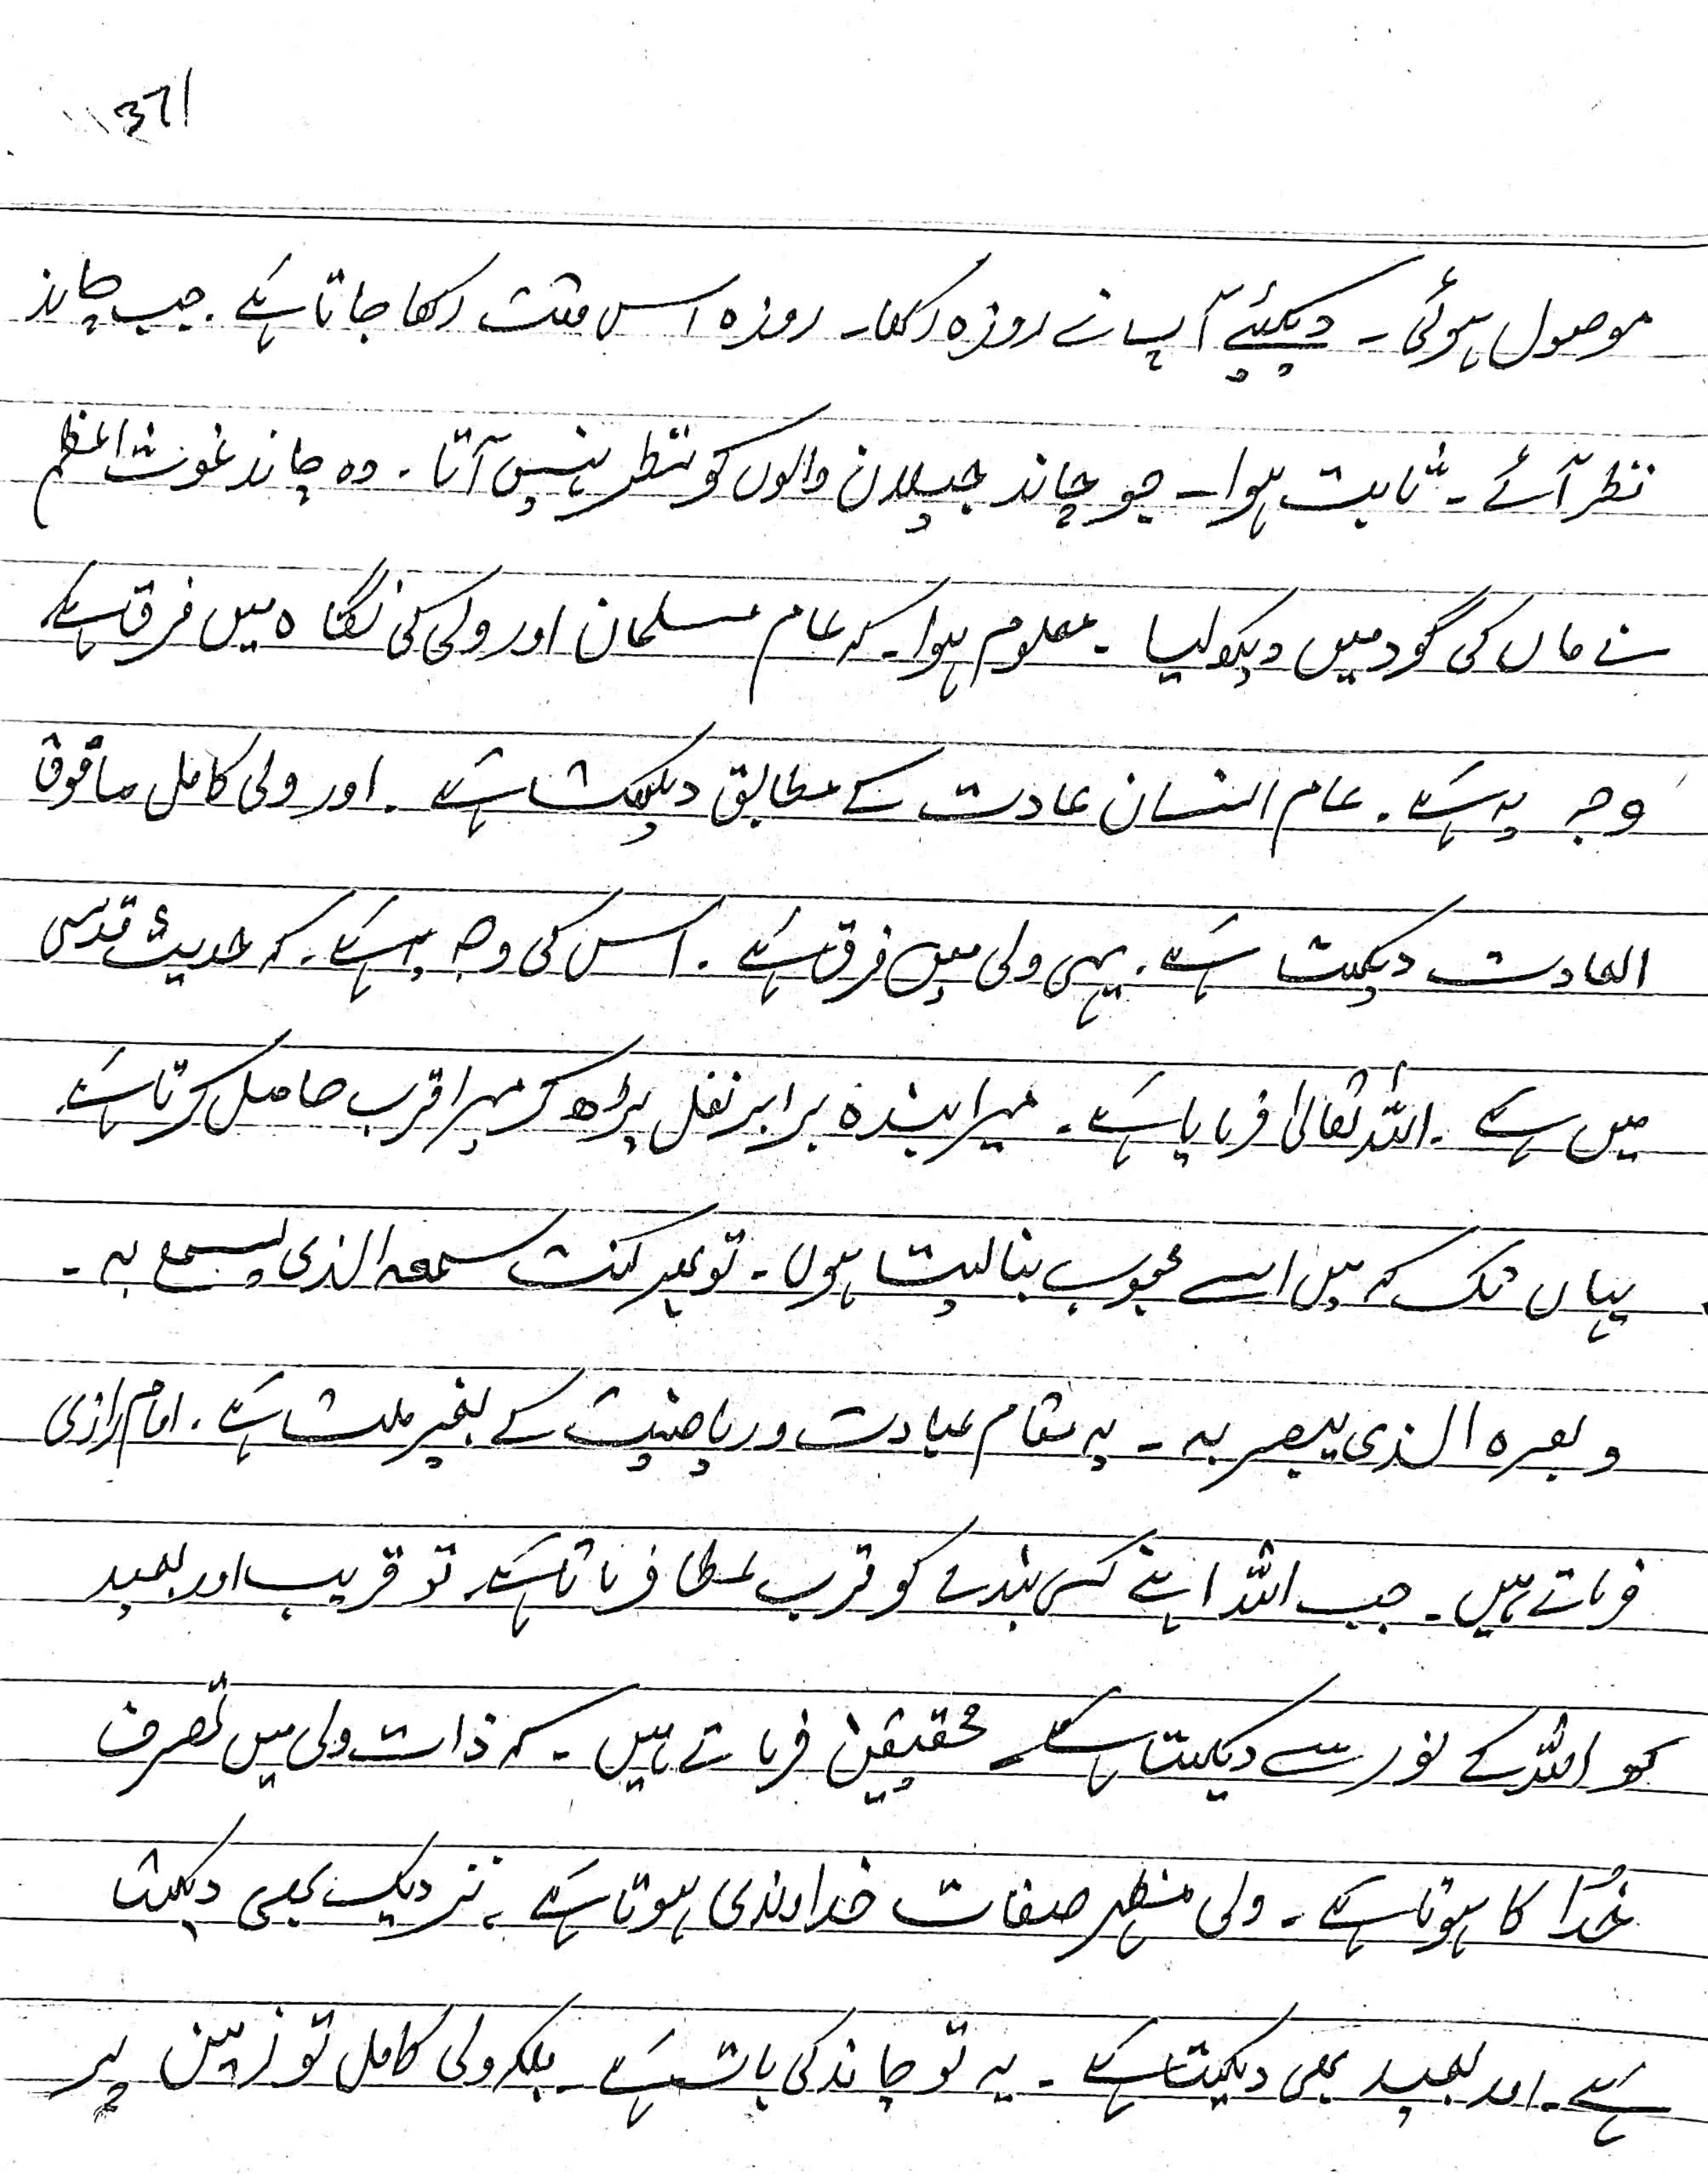 371
موصول ہوئی ۔ دیکھیئے آپ نے روزہ رکھا ۔ روزہ اس وقت رکھا جاتا ہے ۔ جب چاند
نظر آئے ۔ ثابت ہوا ۔ جو چاند جیلان والوں کو نظر نہیں آتا ۔ وہ چاند غوث اعظم
نے ماں کی گود میں دیکھ لیا ۔ معلوم ہوا ۔ کہ عام مسلمان اور ولی کی نگاہ میں فرق ہے
وجہ یہ ہے ۔ عام انسان عادت کے مطابق دیکھتا ہے ۔ اور ولی کامل مافوق
العادت دیکھتا ہے ۔ یہی ولی میں فرق ہے ۔ اس کی وجہ یہ ہے ۔ کہ حدیث قدسی
میں ہے ۔ اللہ تعالیٰ فرمایا ہے ۔ میرا بندہ برابر نفل پڑھ کر میرا قرب حاصل کرتا ہے
یہاں تک کہ میں اسے محبوب بنا لیتا ہوں ۔ تو پھر کنت سمعہ الذی یسمع بہ ۔
و بصرہ الذی یبصر بہ ۔ یہ مقام عبادت و ریاضیت کے بغیر ملتا ہے ۔ امام رازی
فرماتے ہیں ۔ جب اللہ اپنے کسی بندے کو قرب عطا فرماتا ہے تو قریب اور بعید
کو اللہ کے نور سے دیکھتا ہے محققین فرماتے ہیں ۔ کہ ذات ولی میں تصرف
خُدا کا ہوتا ہے ۔ ولی مظہر صفات خداوندی ہوتا ہے ۔ نزدیک بھی دیکھتا
ہے ۔ اور بعید بھی دیکھتا ہے ۔ یہ تو چاند کی بات ہے بلکہ ولی کامل تو زمین پر